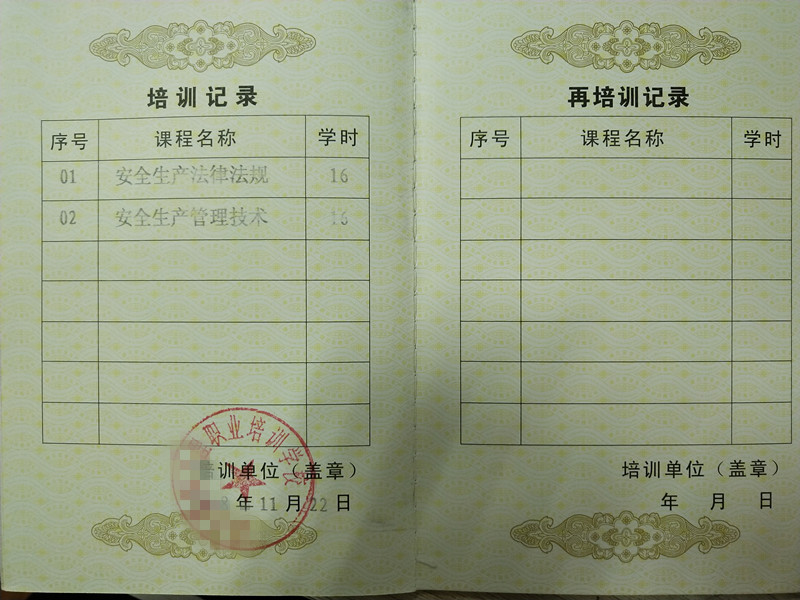 培训记录
序号 课程名称 学时
01 安全生产法律法规 16
02 安全生产管理技术 16
职业培训学校
培训单位（盖章）
年 11 月 22 日
再培训记录
序号 课程名称 学时
培训单位（盖章）
年 月 日